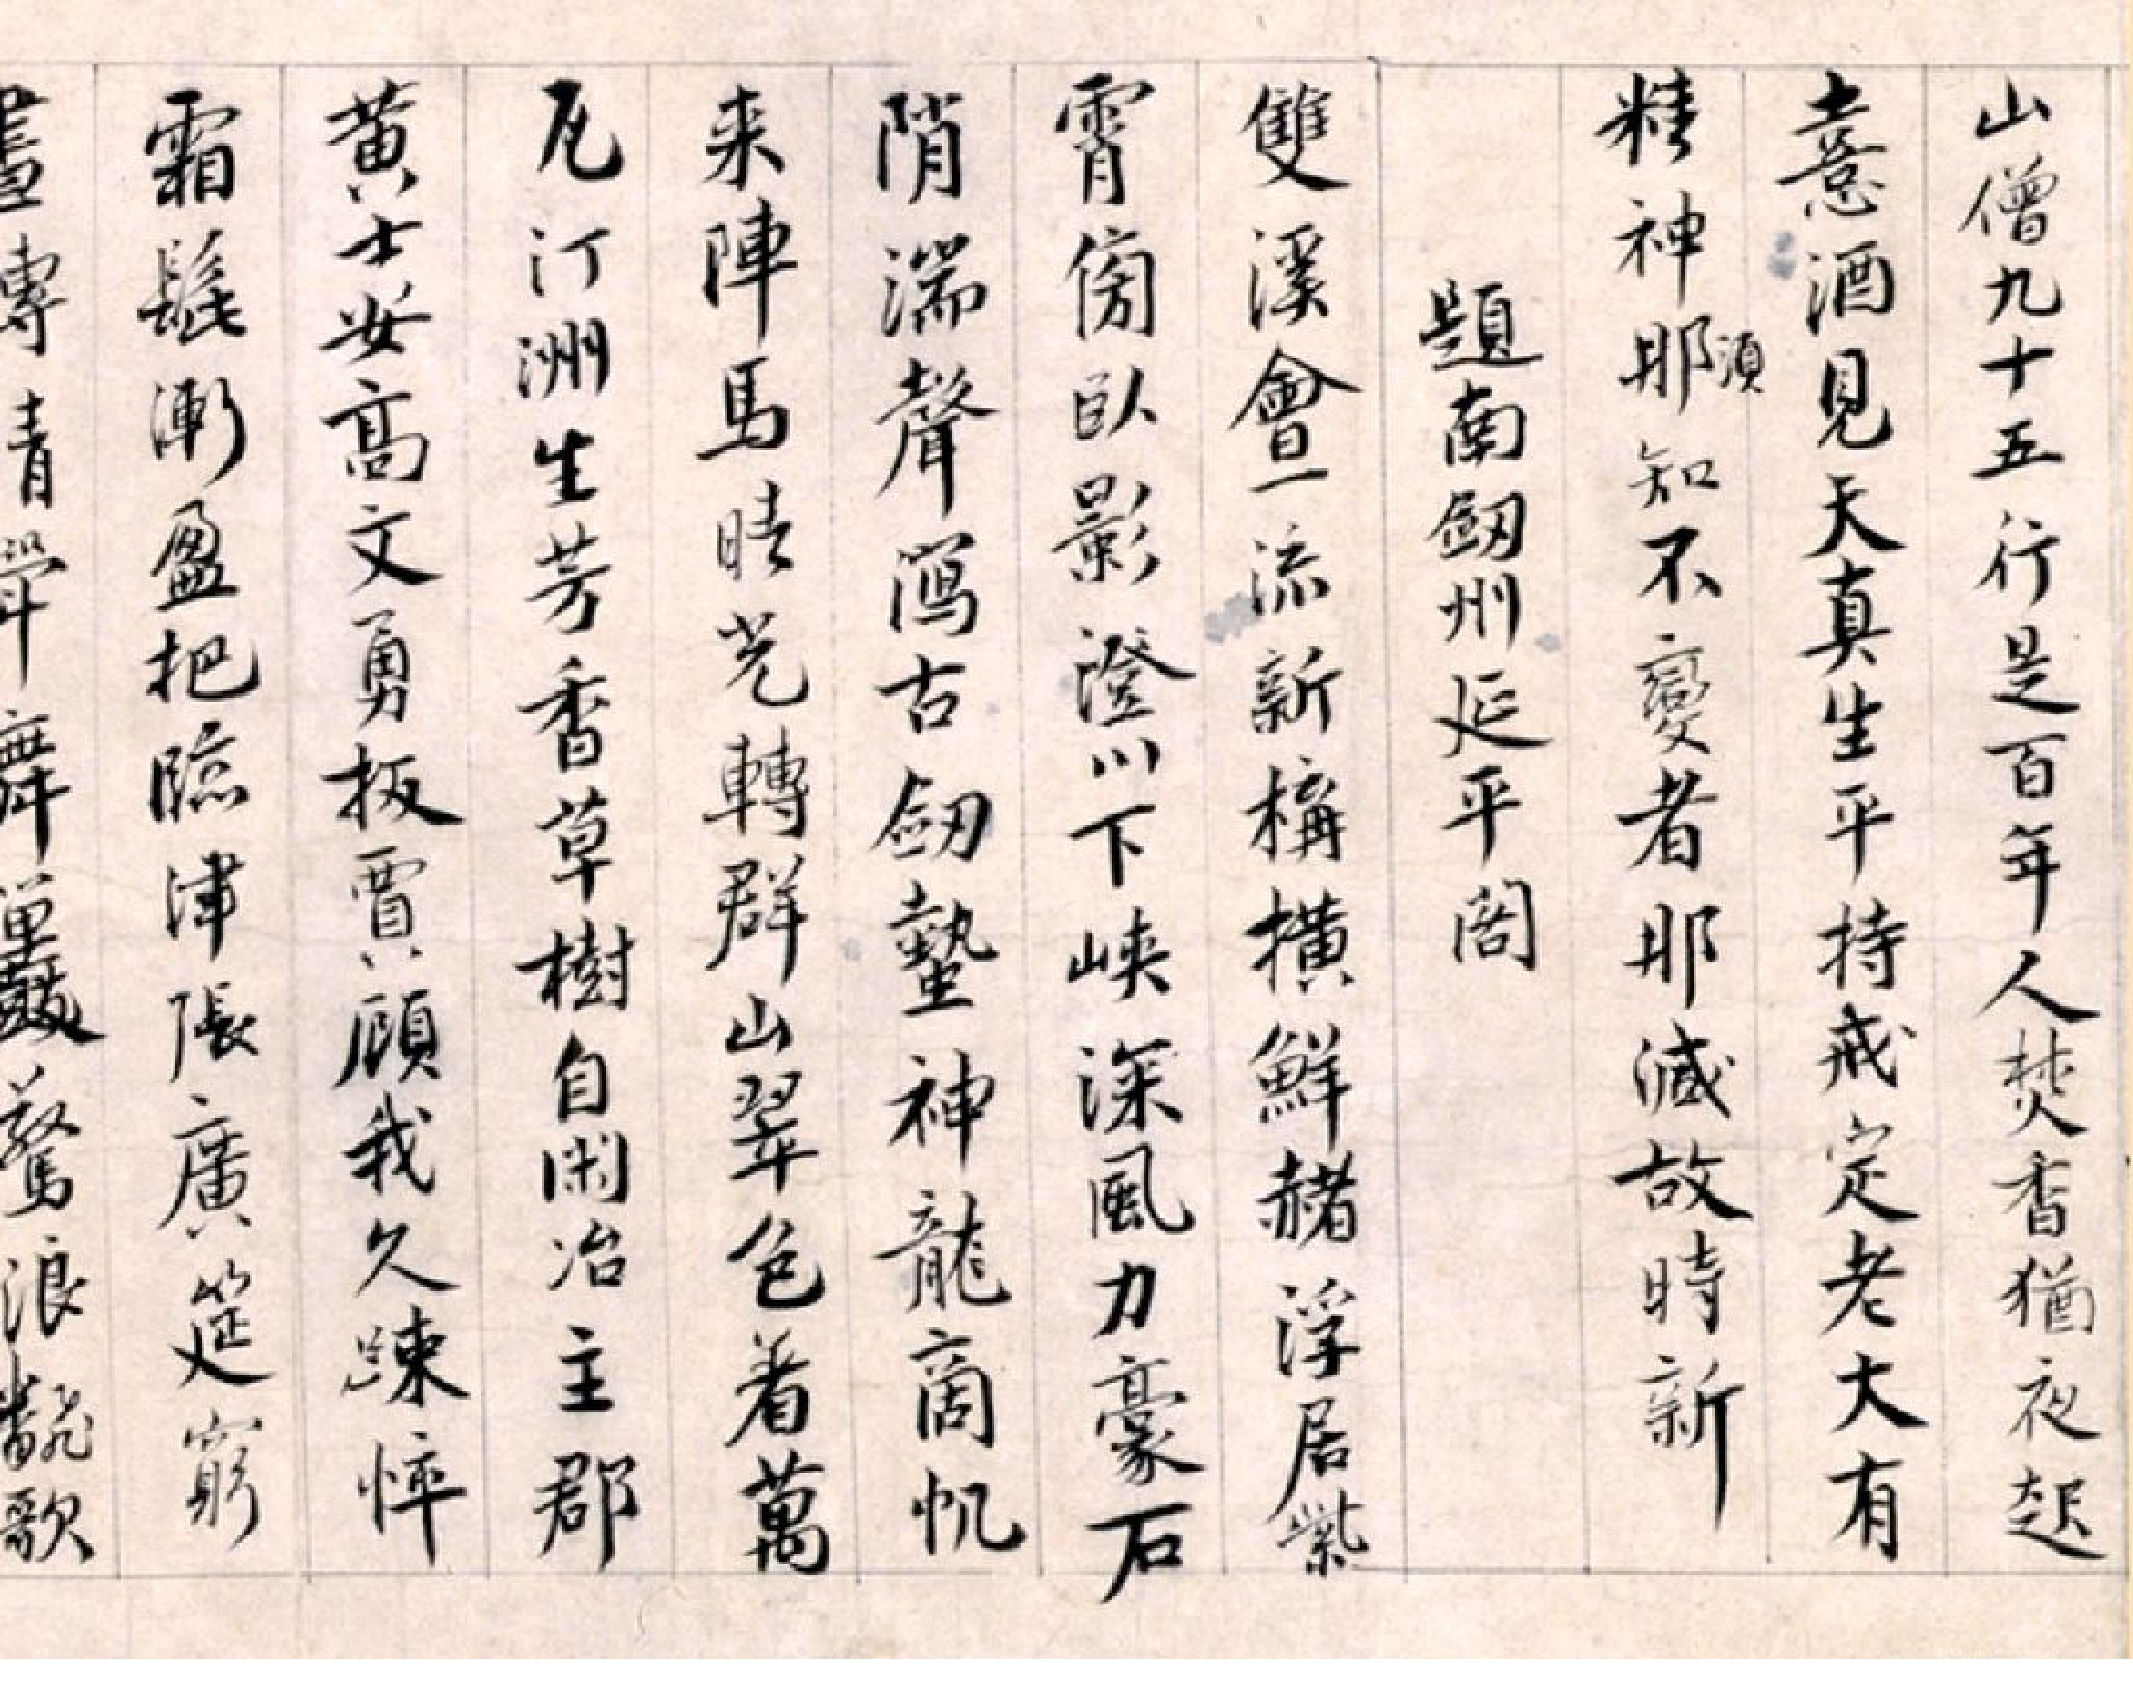 山僧九十五行是百年人焚香猶夜起
憙酒見天真生平持戒定老大有
精神耶須知不變者耶滅故時新
題南劒州延平閣
雙溪會一流新構橫鮮赭浮居紫
霄傍臥影澄川下峽深風力豪石
陗湍聲瀉古劒蟄神龍商帆
来陣馬晴光轉群山翠色着萬
瓦汀洲生芳香草樹自閑冶主郡
黄士安高文勇扳賈顧我久踈悴
霜髭漸盈把臨津張廣筵窮
晝罇青舞鼓驚浪翻歌